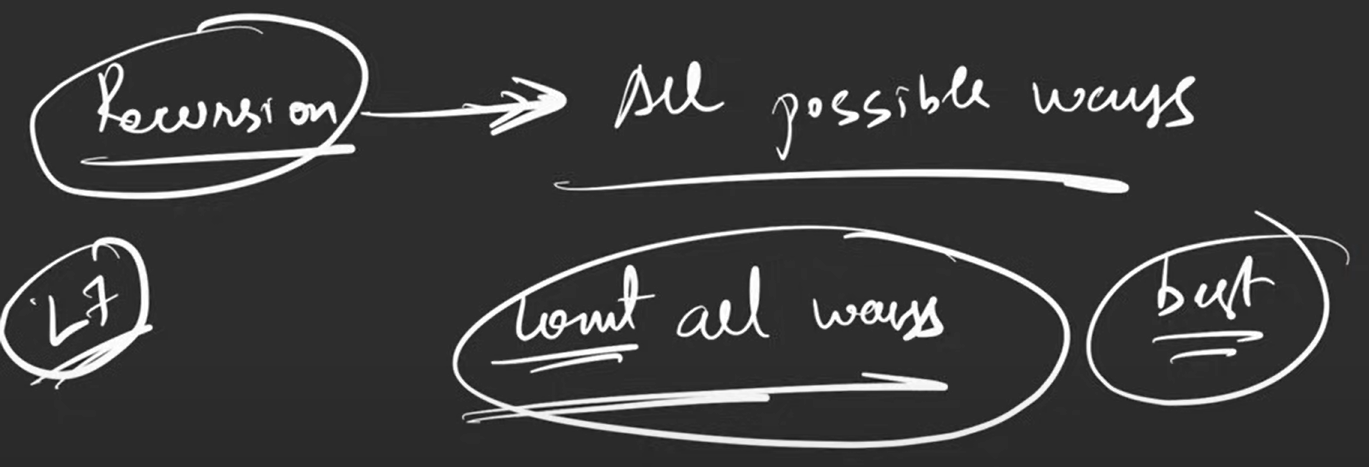 Recursion → All possible ways
L7 Count all ways best